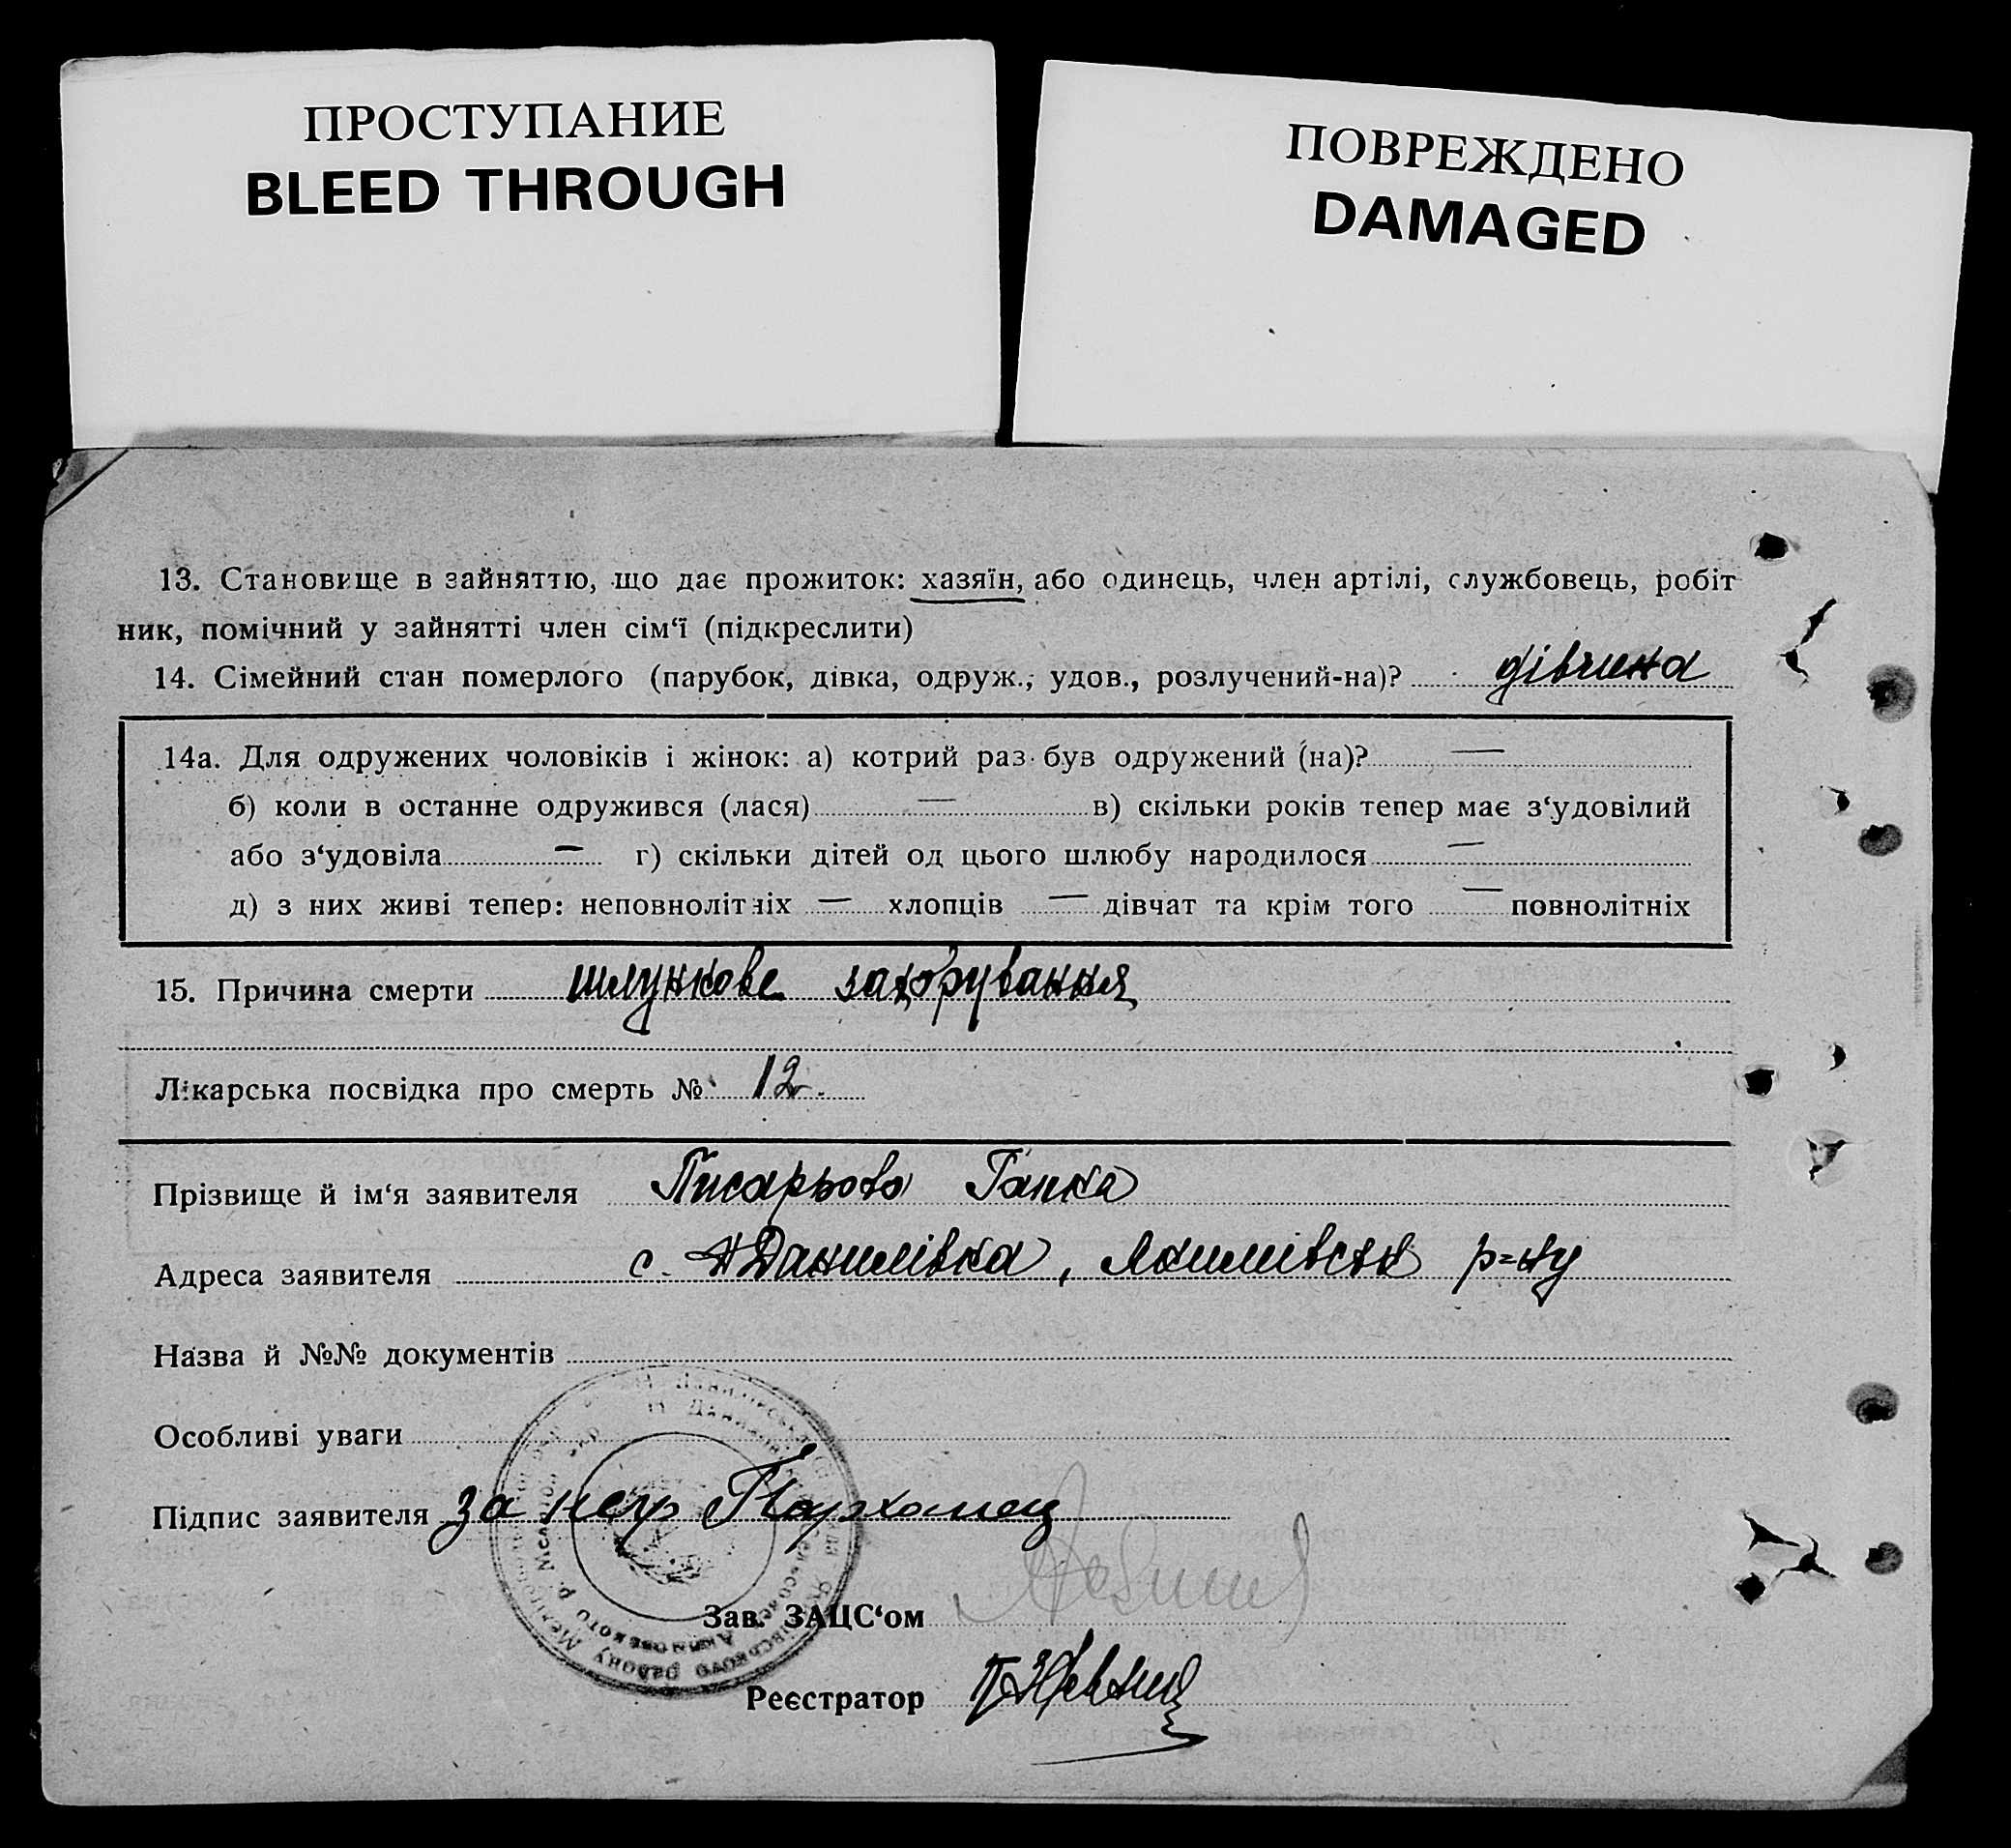 ПРОСТУПАНИЕ
BLEED THROUGH
ПОВРЕЖДЕНО
DAMAGED
13. Становище в зайняттю, що дає прожиток: хазяїн, або одинець, член артілі, службовець, робіт
ник, помічний у зайнятті член сім‘ї (підкреслити)
14. Сімейний стан померлого (парубок, дівка, одруж., удов., розлучений-на)? дівчина
14а. Для одружених чоловіків і жінок: а) котрий раз був одружений (на)? —
б) коли в останне одружився (лася) — в) скільки років тепер має з‘удовілий
або з‘удовіла — г) скільки дітей од цього шлюбу народилося —
д) з них живі тепер: неповнолітніх — хлопців — дівчат та крім того — повнолітніх
15. Причина смерти шлункове захорування
Лікарська посвідка про смерть № 12.
Прізвище й ім‘я заявителя Писарьова Ганка
Адреса заявителя с. Данилівка, Якимівськ р=ну
Назва й №№ документів
Особливі уваги
Підпис заявителя за негр Пархомец
Зав. ЗАЦС‘ом
Реєстратор